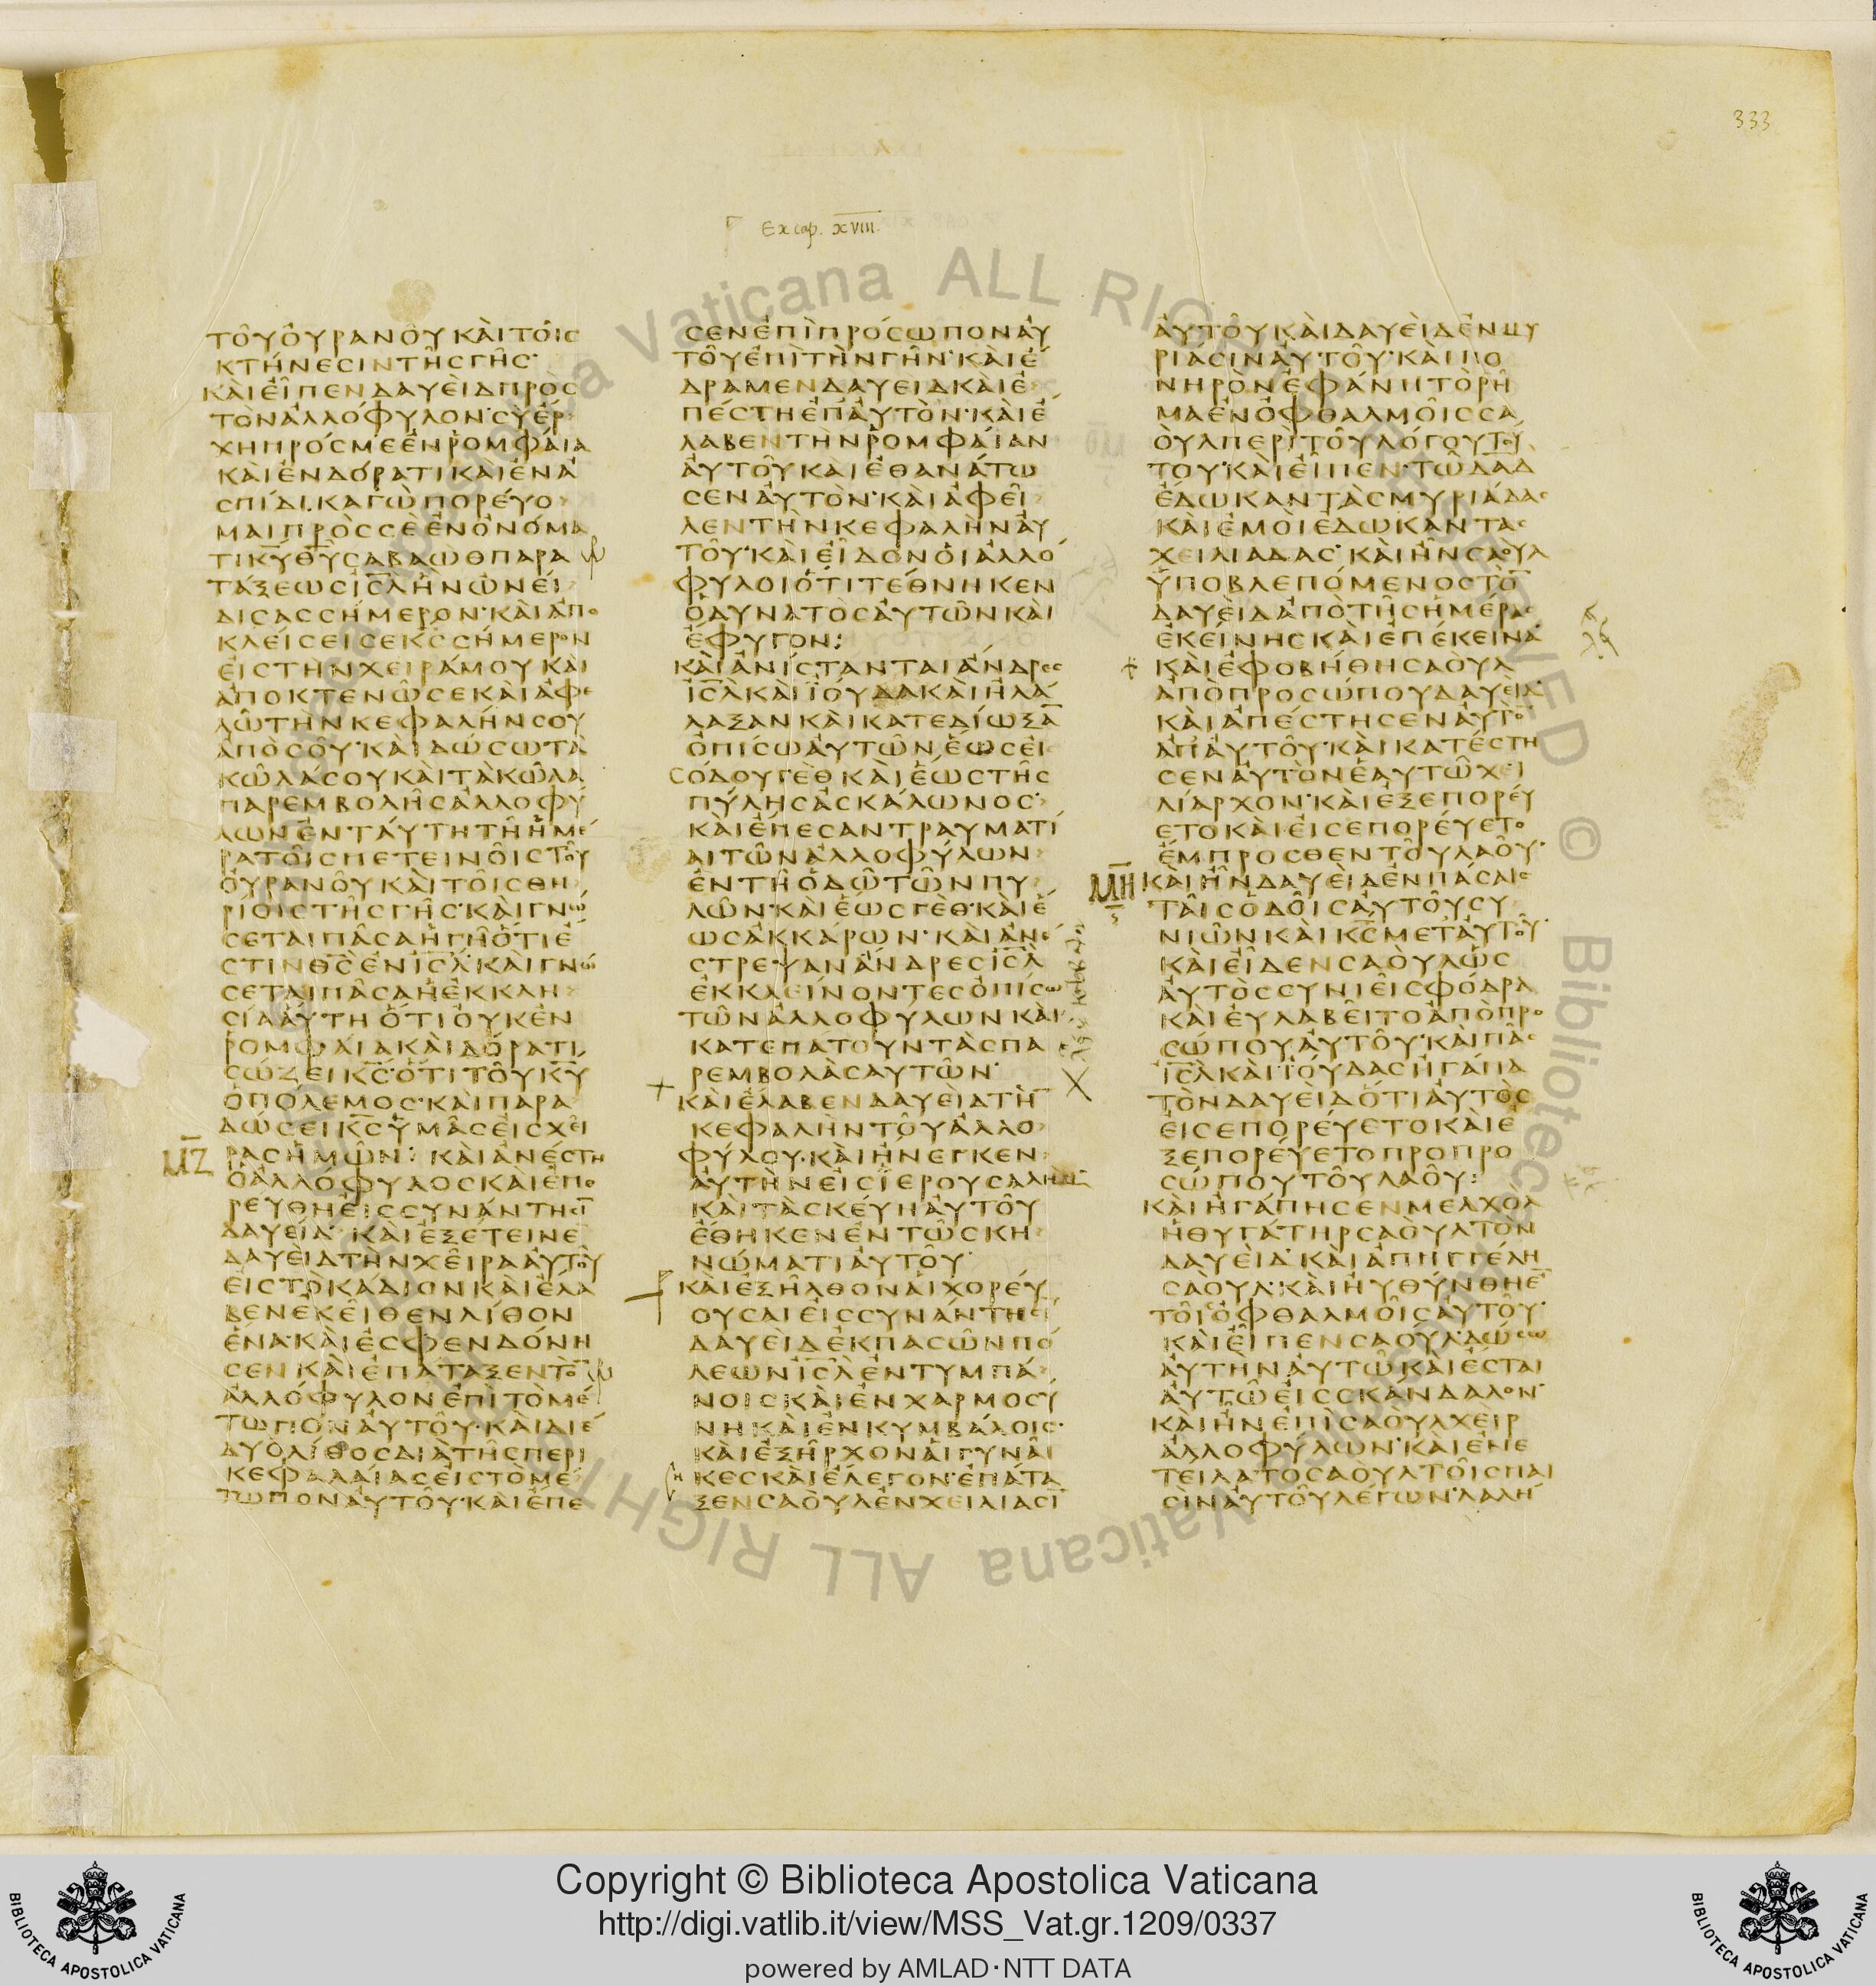 333
Ex cap. XVIII.
ΤΟΥΟΥΡΑΝΟΥΚΑΙΤΟΙC
ΚΤΗΝΕCΙΝΤΗCΓΗC·
ΚΑΙΕΙΠΕΝΔΑΥΕΙΔΠΡΟC
ΤΟΝΑΛΛΟΦΥΛΟΝ·CΥΕΡ
ΧΗΠΡΟCΜΕΕΝΡΟΜΦΑΙΑ
ΚΑΙΕΝΔΟΡΑΤΙΚΑΙΕΝΑ
CΠΙΔΙ·ΚΑΓΩΠΟΡΕΥΟ
ΜΑΙΠΡΟCCΕΕΝΟΝΟΜΑ
ΤΙΚ̅Υ̅Θ̅Υ̅CΑΒΑΩΘΠΑΡΑ
ΤΑΞΕΩCΙ̅C̅Λ̅ΗΝΩΝΕΙ
ΔΙCΑCCΗΜΕΡΟΝ·ΚΑΙΑΠΟ
ΚΛΕΙCΕΙCΕΚ̅C̅CΗΜΕΡΟΝ
ΕΙCΤΗΝΧΕΙΡΑΜΟΥΚΑΙ
ΑΠΟΚΤΕΝΩCΕΚΑΙΑΦΕ
ΛΩΤΗΝΚΕΦΑΛΗΝCΟΥ
ΑΠΟCΟΥ·ΚΑΙΔΩCΩΤΑ
ΚΩΛΑCΟΥΚΑΙΤΑΚΩΛΑ
ΠΑΡΕΜΒΟΛΗCΑΛΛΟΦΥ
ΛΩΝΕΝΤΑΥΤΗΤΗΗΜΕ
ΡΑΤΟΙCΠΕΤΕΙΝΟΙCΤΟΥ
ΟΥΡΑΝΟΥΚΑΙΤΟΙCΘΗ
ΡΙΟΙCΤΗCΓΗC·ΚΑΙΓΝΩ
CΕΤΑΙΠΑCΑΗΓΗΟΤΙΕ
CΤΙΝΘ̅C̅ΕΝΙ̅C̅Λ̅·ΚΑΙΓΝΩ
CΕΤΑΙΠΑCΑΗΕΚΚΛΗ
CΙΑΑΥΤΗΟΤΙΟΥΚΕΝ
ΡΟΜΦΑΙΑΚΑΙΔΟΡΑΤΙ
CΩΖΕΙΚ̅C̅·ΟΤΙΤΟΥΚ̅Υ̅
ΟΠΟΛΕΜΟC·ΚΑΙΠΑΡΑ
ΔΩCΕΙΚ̅C̅ΥΜΑCΕΙCΧΕΙ
Μ̅Ζ̅ ΡΑCΗΜΩΝ: ΚΑΙΑΝΕCΤΗ
ΟΑΛΛΟΦΥΛΟCΚΑΙΕΠΟ
ΡΕΥΘΗΕΙCCΥΝΑΝΤΗCΙ̅
ΔΑΥΕΙΔ· ΚΑΙΕΞΕΤΕΙΝΕ
ΔΑΥΕΙΔΤΗΝΧΕΙΡΑΑΥΤΟΥ
ΕΙCΤΟΚΑΔΙΟΝΚΑΙΕΛΑ
ΒΕΝΕΚΕΙΘΕΝΛΙΘΟΝ
ΕΝΑ·ΚΑΙΕCΦΕΝΔΟΝΗ
CΕΝΚΑΙΕΠΑΤΑΞΕΝΤΟ̅
ΑΛΛΟΦΥΛΟΝΕΠΙΤΟΜΕ
ΤΩΠΟΝΑΥΤΟΥ·ΚΑΙΔΙΕ
ΔΥΟΛΙΘΟCΔΙΑΤΗCΠΕΡΙ
ΚΕΦΑΛΑΙΑCΕΙCΤΟΜΕ
ΤΩΠΟΝΑΥΤΟΥ·ΚΑΙΕΠΕ
CΕΝΕΠΙΠΡΟCΩΠΟΝΑΥ
ΤΟΥΕΠΙΤΗΝΓΗΝ·ΚΑΙΕ
ΔΡΑΜΕΝΔΑΥΕΙΔΚΑΙΕ
ΠΕCΤΗΕΠΑΥΤΟΝ·ΚΑΙΕ
ΛΑΒΕΝΤΗΝΡΟΜΦΑΙΑΝ
ΑΥΤΟΥΚΑΙΕΘΑΝΑΤΩ
CΕΝΑΥΤΟΝ·ΚΑΙΑΦΕΙ
ΛΕΝΤΗΝΚΕΦΑΛΗΝΑΥ
ΤΟΥ·ΚΑΙΕΙΔΟΝΟΙΑΛΛΟ
ΦΥΛΟΙΟΤΙΤΕΘΝΗΚΕΝ
ΟΔΥΝΑΤΟCΑΥΤΩΝΚΑΙ
ΕΦΥΓΟΝ:
ΚΑΙΑΝΙCΤΑΝΤΑΙΑΝΔΡΕC
Ι̅C̅Λ̅ΚΑΙΙΟΥΔΑΚΑΙΗΛΑ
ΛΑΞΑΝΚΑΙΚΑΤΕΔΙΩΞΑ̅
ΟΠΙCΩΑΥΤΩΝΕΩCΕΙ
CΟΔΟΥΓΕΘΚΑΙΕΩCΤΗC
ΠΥΛΗCΑCΚΑΛΩΝΟC·
ΚΑΙΕΠΕCΑΝΤΡΑΥΜΑΤΙ
ΑΙΤΩΝΑΛΛΟΦΥΛΩΝ
ΕΝΤΗΟΔΩΤΩΝΠΥ
ΛΩΝ·ΚΑΙΕΩCΓΕΘ·ΚΑΙΕ
ΩCΑΚΚΑΡΩΝ·ΚΑΙΑΝΕ
CΤΡΕΨΑΝΑΝΔΡΕCΙ̅C̅Λ̅
ΕΚΚΛΕΙΝΟΝΤΕCΟΠΙCΩ
ΤΩΝΑΛΛΟΦΥΛΩΝΚΑΙ
ΚΑΤΕΠΑΤΟΥΝΤΑCΠΑ
ΡΕΜΒΟΛΑCΑΥΤΩΝ·
ΚΑΙΕΛΑΒΕΝΔΑΥΕΙΔΤΗ̅
ΚΕΦΑΛΗΝΤΟΥΑΛΛΟ
ΦΥΛΟΥ·ΚΑΙΗΝΕΓΚΕΝ
ΑΥΤΗΝΕΙCΙΕΡΟΥCΑΛΗΜ
ΚΑΙΤΑCΚΕΥΗΑΥΤΟΥ
ΕΘΗΚΕΝΕΝΤΩCΚΗ
ΝΩΜΑΤΙΑΥΤΟΥ·
ΚΑΙΕΞΗΛΘΟΝΑΙΧΟΡΕΥ
ΟΥCΑΙΕΙCCΥΝΑΝΤΗCΙ
ΔΑΥΕΙΔΕΚΠΑCΩΝΠΟ
ΛΕΩΝΙ̅C̅Λ̅ΕΝΤΥΜΠΑ
ΝΟΙCΚΑΙΕΝΧΑΡΜΟCΥ
ΝΗΚΑΙΕΝΚΥΜΒΑΛΟΙC·
ΚΑΙΕΞΗΡΧΟΝΑΙΓΥΝΑΙ
ΚΕCΚΑΙΕΛΕΓΟΝ·ΕΠΑΤΑ
ΞΕΝCΑΟΥΛΕΝΧΕΙΛΙΑCΙ̅
ΑΥΤΟΥΚΑΙΔΑΥΕΙΔΕΝΜΥ
ΡΙΑCΙΝΑΥΤΟΥ·ΚΑΙΠΟ
ΝΗΡΟΝΕΦΑΝΗΤΟΡΗ
ΜΑΕΝΟΦΘΑΛΜΟΙCCΑ
ΟΥΛΠΕΡΙΤΟΥΛΟΓΟΥΤΟΥ
ΤΟΥ·ΚΑΙΕΙΠΕΝ·ΤΩΔ̅Α̅Δ̅
ΕΔΩΚΑΝΤΑCΜΥΡΙΑΔΑC
ΚΑΙΕΜΟΙΕΔΩΚΑΝΤΑC
ΧΕΙΛΙΑΔΑC·ΚΑΙΗΝCΑΟΥΛ
ΥΠΟΒΛΕΠΟΜΕΝΟCΤΟ̅
ΔΑΥΕΙΔΑΠΟΤΗCΗΜΕΡΑC
ΕΚΕΙΝΗCΚΑΙΕΠΕΚΕΙΝΑ·
ΚΑΙΕΦΟΒΗΘΗCΑΟΥΛ
ΑΠΟΠΡΟCΩΠΟΥΔΑΥΕΙΔ·
ΚΑΙΑΠΕCΤΗCΕΝΑΥΤΟ̅
ΑΠΑΥΤΟΥ·ΚΑΙΚΑΤΕCΤΗ
CΕΝΑΥΤΟΝΕΑΥΤΩΧΕΙ
ΛΙΑΡΧΟΝ·ΚΑΙΕΞΕΠΟΡΕΥ
ΕΤΟΚΑΙΕΙCΕΠΟΡΕΥΕΤΟ
ΕΜΠΡΟCΘΕΝΤΟΥΛΑΟΥ·
Μ̅Η̅ ΚΑΙΗΝΔΑΥΕΙΔΕΝΠΑCΑΙC
ΤΑΙCΟΔΟΙCΑΥΤΟΥCΥ
ΝΙΩΝΚΑΙΚ̅C̅ΜΕΤΑΥΤΟΥ·
ΚΑΙΕΙΔΕΝCΑΟΥΛΩC
ΑΥΤΟCCΥΝΙΕΙCΦΟΔΡΑ
ΚΑΙΕΥΛΑΒΕΙΤΟΑΠΟΠΡΟ
CΩΠΟΥΑΥΤΟΥ·ΚΑΙΠΑC
Ι̅C̅Λ̅ΚΑΙΙΟΥΔΑCΗΓΑΠΑ
ΤΟΝΔΑΥΕΙΔΟΤΙΑΥΤΟC
ΕΙCΕΠΟΡΕΥΕΤΟΚΑΙΕ
ΞΕΠΟΡΕΥΕΤΟΠΡΟΠΡΟ
CΩΠΟΥΤΟΥΛΑΟΥ:
ΚΑΙΗΓΑΠΗCΕΝΜΕΛΧΟΛ
ΗΘΥΓΑΤΗΡCΑΟΥΛΤΟΝ
ΔΑΥΕΙΔ·ΚΑΙΑΠΗΓΓΕΛΗ
CΑΟΥΛ·ΚΑΙΗΥΘΥΝΘΗΕ̅
ΤΟΙCΟΦΘΑΛΜΟΙCΑΥΤΟΥ·
ΚΑΙΕΙΠΕΝCΑΟΥΛ·ΔΩCΩ
ΑΥΤΗΝΑΥΤΩΚΑΙΕCΤΑΙ
ΑΥΤΩΕΙCCΚΑΝΔΑΛΟΝ·
ΚΑΙΗΝΕΠΙCΑΟΥΛΧΕΙΡ
ΑΛΛΟΦΥΛΩΝ·ΚΑΙΕΝΕ
ΤΕΙΛΑΤΟCΑΟΥΛΤΟΙCΠΑΙ
CΙΝΑΥΤΟΥΛΕΓΩΝ·ΛΑΛΗ
Copyright © Biblioteca Apostolica Vaticana
http://digi.vatlib.it/view/MSS_Vat.gr.1209/0337
powered by AMLAD·NTT DATA
BIBLIOTECA APOSTOLICA VATICANA
BIBLIOTECA APOSTOLICA VATICANA